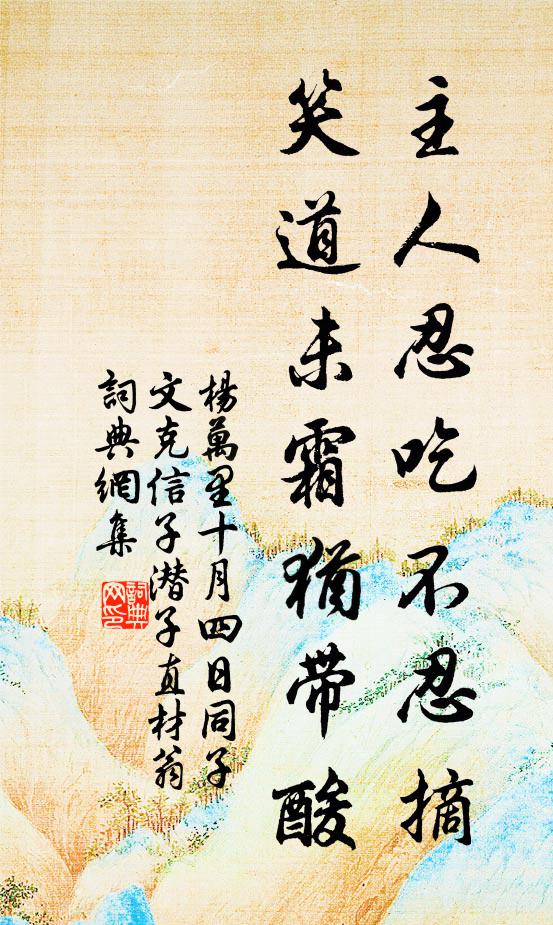 主人忍吃不忍摘
笑道未霜猶帶酸
楊萬里十月四日同子
文克信子潛子直材翁
詞典網集
詞典
网印